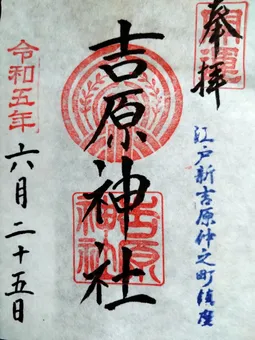 開運
奉拝
江戸新吉原仲之町鎮座
吉原神社
吉原神社
令和五年
六月二十五日